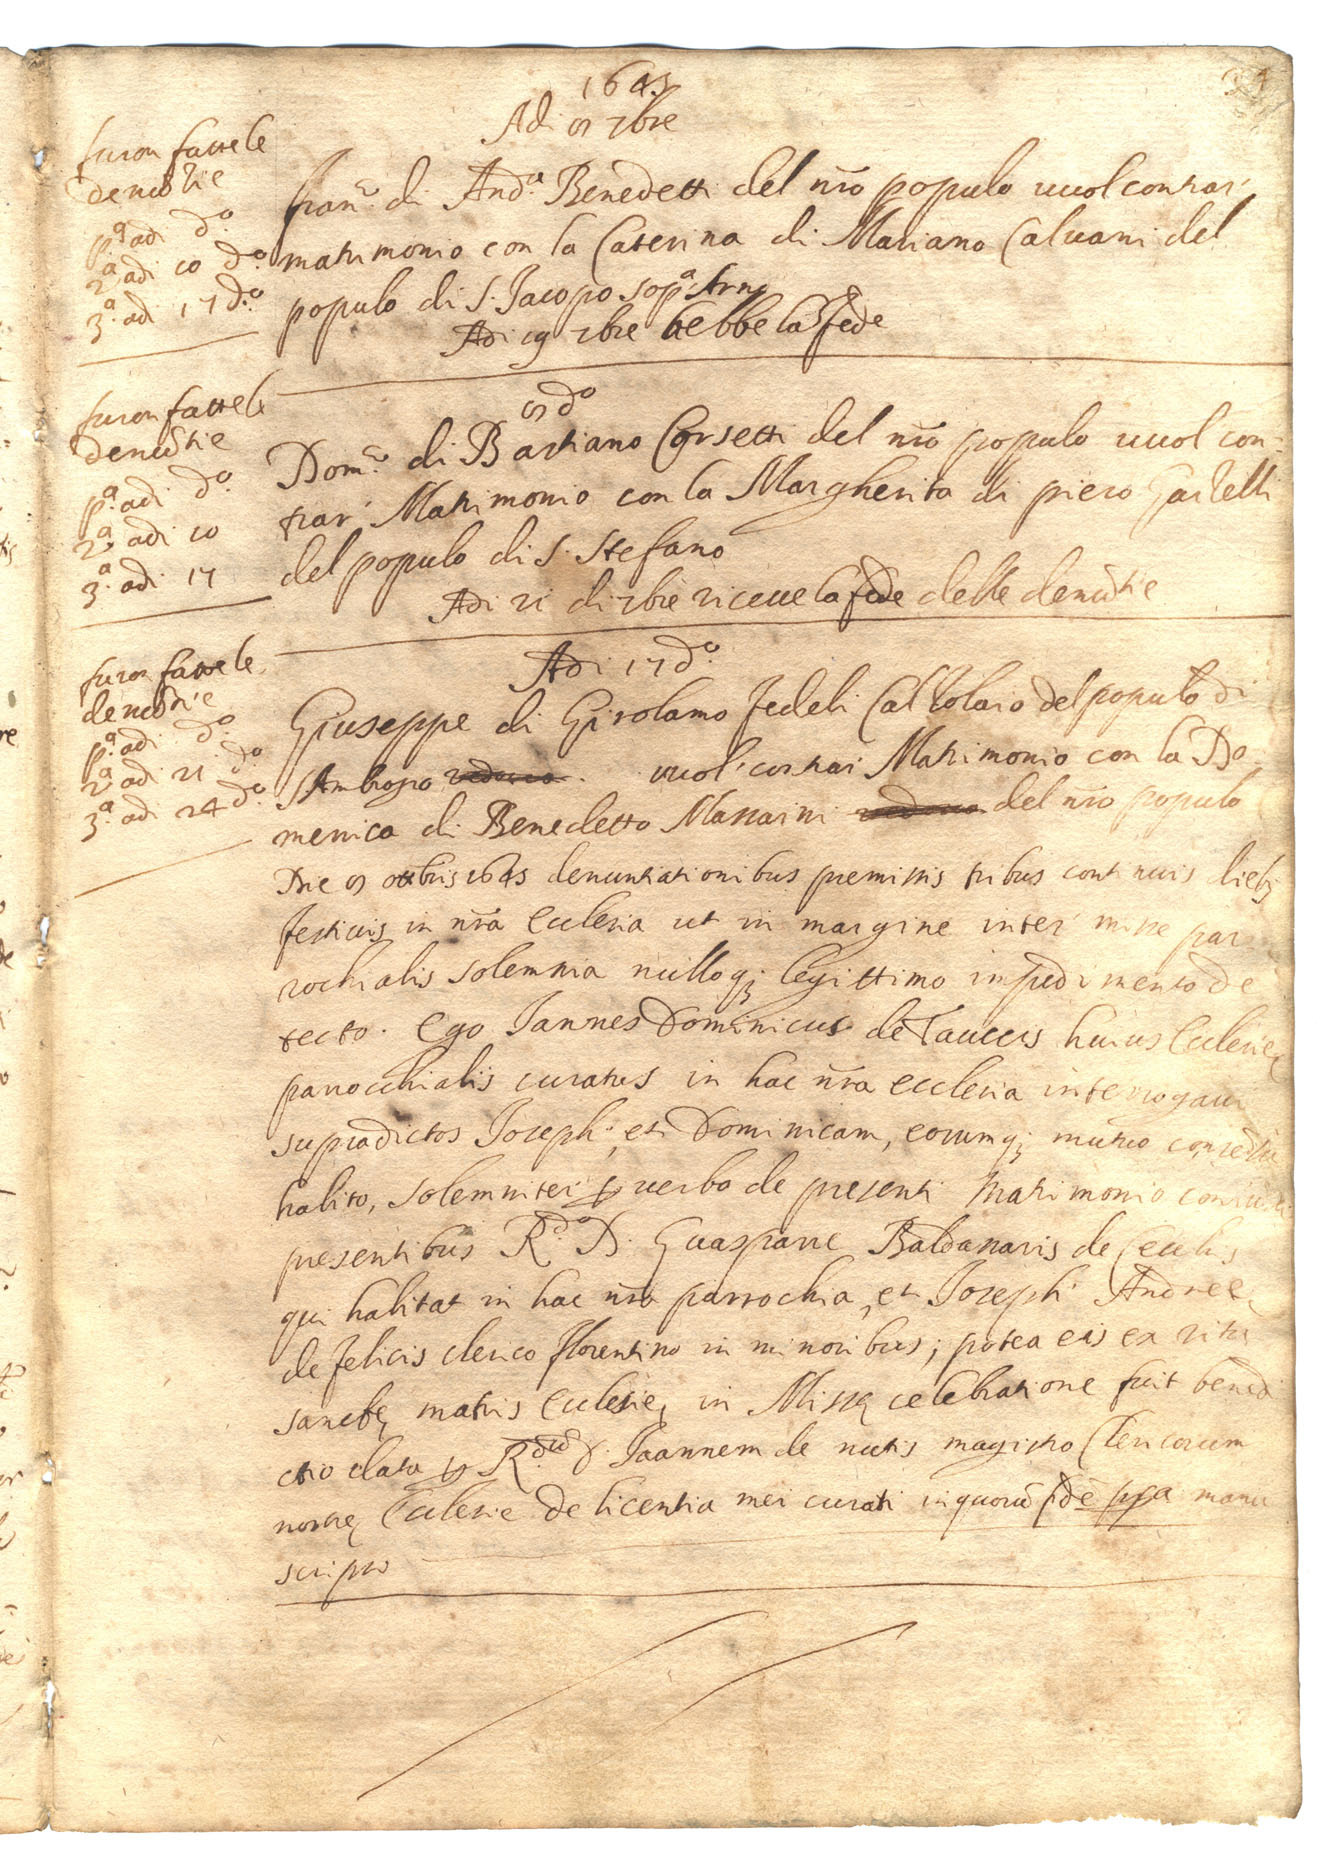 1645
Adi 3 7bre
furon fatte le
denūtie
pª adi do
2ª adi 10 do
3ª adi 17 do
franco di Andª Benedetti del nro populo vuol contrar
matrimonio con la Caterina di Mariano Calvani del
populo di S. Jacopo sopª Arno
Adi 19 7bre hebbe la fede
furon fatte le
denūtie
pª adi do
2ª adi 10
3ª adi 17
3 do
Domco di Bastiano Corsetti del nro populo vuol con-
trar Matrimonio con la Margherita di piero
del populo di S. Stefano
Adi 21 di 7bre riceue la fede delle denūtie
furon fatte le
denūtie
pª adi do
2ª adi 21 do
3ª adi 24 do
Adi 17 do
Giuseppe di Girolamo fedeli Calzolaio del populo di
S Ambrogio vuol contrar Matrimonio con la Do
menica di Benedetto Massarini del nro populo
Die 3 ottbris 1645 denuntiationibus premissis tribus continuis dieb;
festivis in nra Ecclesia ut in margine inter misse par
rochialis solemnia nulloq; legittimo impedimento de
tecto. Ego Joannes Dominicus de huius Ecclesię
parrocchialis curatus in hac nra ecclesia interrogavi
supradictos Joseph: et Dominicam, eorumq; mutuo consensu
habito, solemniter p verbo de presenti Matrimonio coniunxi
presentibus Rdo D. Guasparre Baldassaris de Cecchis
qui habitat in hac nra parrochia, et Joseph Andreę
de felicis clerico florentino in minoribus; postea eis ex ritu
sanctę matris Ecclesię, in Missę celebratione fuit benedi
ctio data p Rdum D. Joannem de nutis magistro Clericorum
nostrę Ecclesie de licentia mei curati in quorū fide ppa manu
scripsi